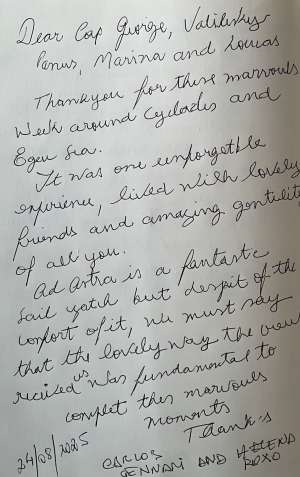 Dear Cap George, Vasiliskys
Panus, Marina and Loucas
Thankyou for these marvouls
Week around Cyclades and
Egeu Sea.
It was one unforgetble
expirience, lived with lovely
friends and amazing gentility
of all you.
Ad Astra is a fantastc
sail yatch but despit of the
confort of it, we must say
that the lovely way the crew
recived us was fundamental to
complet thes marvouls
moments
Thank's
24/08/2025
CARLOS
GENNARI AND HELENA
ROXO